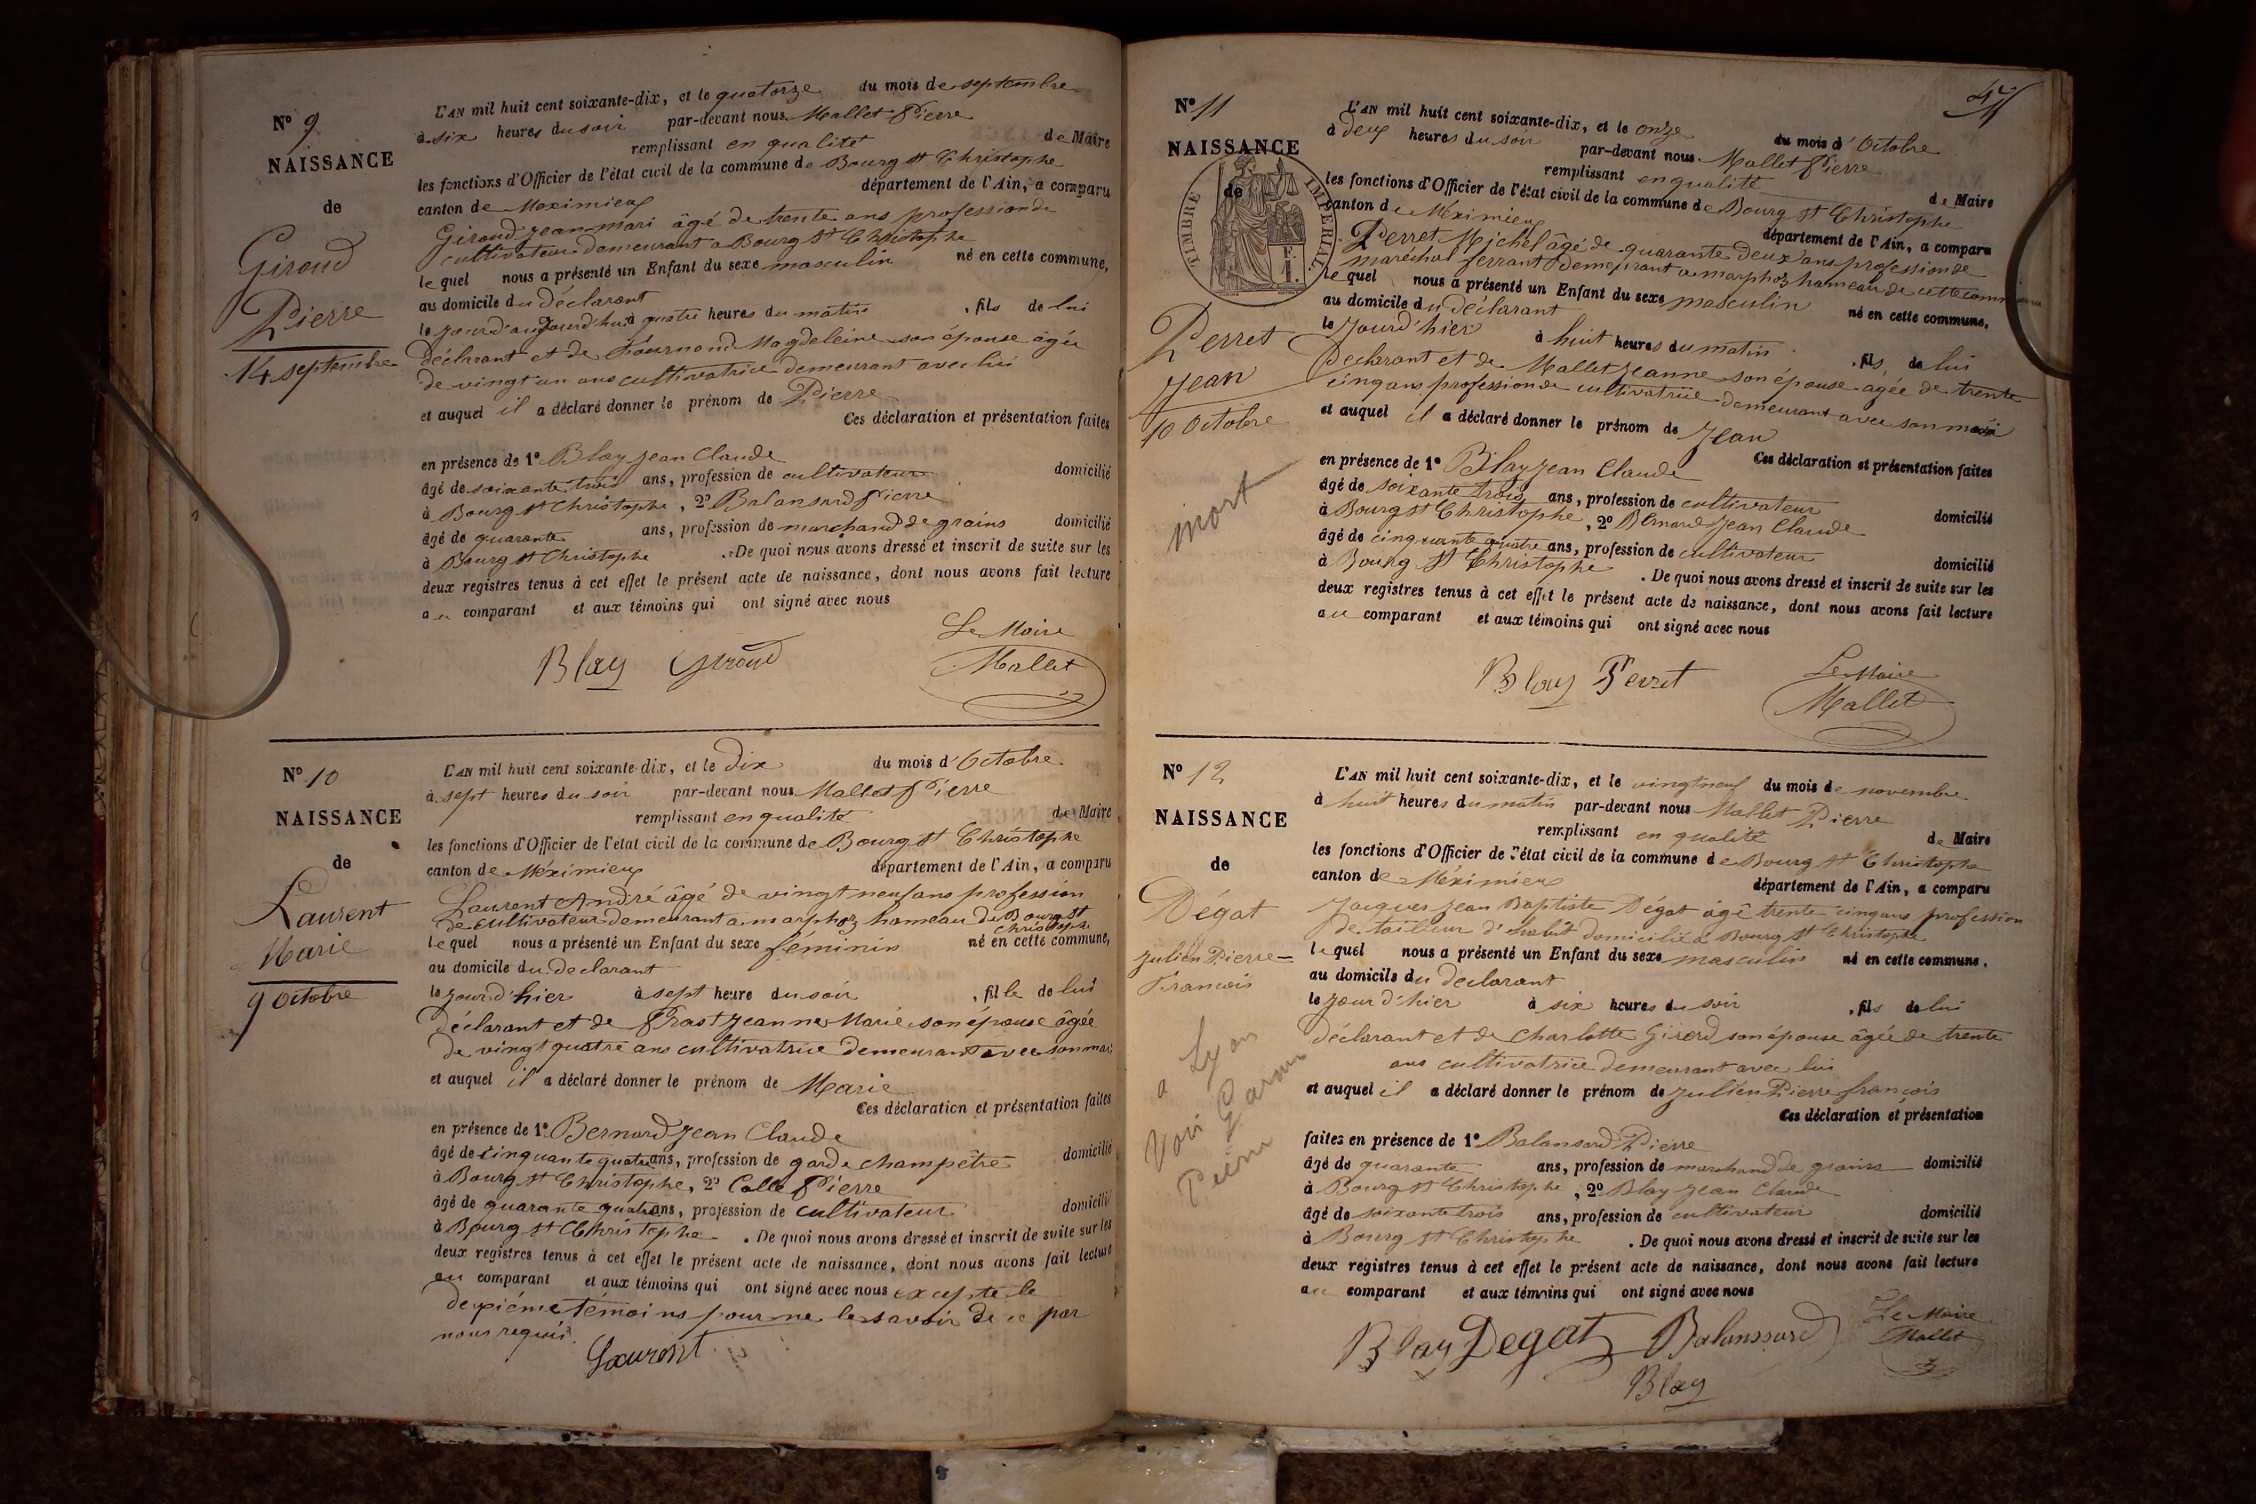 Nº 9
NAISSANCE
de
Giroud
Pierre
14 septembre
L'AN mil huit cent soixante-dix, et le quatorze du mois de septembre
à six heures du soir par-devant nous Mallet Pierre
remplissant en qualité de Maire
les fonctions d'Officier de l'état civil de la commune de Bourg St Christophe
canton de Meximieux département de l'Ain, a comparu
Giroud jean mari âgé de trente ans profession de
cultivateur demeurant a Bourg St Christophe
le quel nous a présenté un Enfant du sexe masculin né en cette commune,
au domicile du déclarant
le jour d'aujourd'hui à quatre heures du matin , fils de lui
déclarant et de Magdeleine son épouse âgée
de vingt un ans cultivatrice demeurant avec lui
et auquel il a déclaré donner le prénom de Pierre
Ces déclaration et présentation faites
en présence de 1º Blay jean Claude
âgé de soixante trois ans, profession de cultivateur domicilié
à Bourg St Christophe, 2º Balansard Pierre
âgé de quarante ans, profession de marchand de grains domicilié
à Bourg St Christophe . De quoi nous avons dressé et inscrit de suite sur les
deux registres tenus à cet effet le présent acte de naissance, dont nous avons fait lecture
au comparant et aux témoins qui ont signé avec nous
Le Maire
Blay Giroud Mallet
Nº 10
NAISSANCE
de
Laurent
Marie
9 Octobre
L'AN mil huit cent soixante-dix, et le dix du mois d'Octobre
à sept heures du soir par-devant nous Mallet Pierre
remplissant en qualité de Maire
les fonctions d'Officier de l'état civil de la commune de Bourg St Christophe
canton de Méximieux département de l'Ain, a comparu
Laurent André âgé de vingt neuf ans profession
de cultivateur demeurant a marphoz hameau de Bourg St
Christophe
le quel nous a présenté un Enfant du sexe féminin né en cette commune,
au domicile du declarant
le jour d'hier à sept heure du soir , fille de lui
Déclarant et de Prost jeanne Marie son épouse âgée
de vingt quatre ans cultivatrice demeurant avec son mari
et auquel il a déclaré donner le prénom de Marie
Ces déclaration et présentation faites
en présence de 1º Bernard jean Claude
âgé de cinquante quatre ans, profession de garde champêtre domicilié
à Bourg St Christophe, 2º Colle Pierre
âgé de quarante quatre ans, profession de cultivateur domicilié
à Bourg St Christophe . De quoi nous avons dressé et inscrit de suite sur les
deux registres tenus à cet effet le présent acte de naissance, dont nous avons fait lecture
au comparant et aux témoins qui ont signé avec nous excepte le
deuxiéme témoins pour ne le savoir de ce par
nous requis.
Laurent
47
Nº 11
NAISSANCE
de
TIMBRE IMPERIAL
1 F.
Perret
Jean
10 Octobre
mort
L'AN mil huit cent soixante-dix, et le onze du mois d'Octobre
à deux heures du soir par-devant nous Mallet Pierre
remplissant en qualité de Maire
les fonctions d'Officier de l'état civil de la commune de Bourg St Christophe
canton de Méximieux département de l'Ain, a comparu
Perret Michel âgé de quarante deux ans profession de
maréchal ferrant demeurant a marphoz hameau de cette commune
le quel nous a présenté un Enfant du sexe masculin né en cette commune,
au domicile du déclarant
le jour d'hier à huit heures du matin , fils de lui
Declarant et de Mallet jeanne son épouse agée de trente
cinq ans profession de cultivatrice demeurant avec son mari
et auquel il a déclaré donner le prénom de Jean
Ces déclaration et présentation faites
en présence de 1º Blay jean Claude
âgé de soixante trois ans, profession de cultivateur domicilié
à Bourg St Christophe, 2º Bernard jean Claude
âgé de cinquante quatre ans, profession de cultivateur domicilié
à Bourg St Christophe . De quoi nous avons dressé et inscrit de suite sur les
deux registres tenus à cet effet le présent acte de naissance, dont nous avons fait lecture
au comparant et aux témoins qui ont signé avec nous
Le Maire
Blay Perret Mallet
Nº 12
NAISSANCE
de
Dégat
julien Pierre
François
a Lyon
Voir
L'AN mil huit cent soixante-dix, et le vingt neuf du mois de novembre
à huit heures du matin par-devant nous Mallet Pierre
remplissant en qualité de Maire
les fonctions d'Officier de l'état civil de la commune de Bourg St Christophe
canton de Méximieux département de l'Ain, a comparu
Jacques jean Baptiste Dégat âgé trente cinq ans profession
de tailleur d'habit domicilié a Bourg St Christophe
le quel nous a présenté un Enfant du sexe masculin né en cette commune,
au domicile du declarant
le jour d'hier à six heures du soir , fils de lui
déclarant et de Charlotte Girerd son épouse âgée de trente
ans cultivatrice demeurant avec lui
et auquel il a déclaré donner le prénom de julien Pierre françois
Ces déclaration et présentation
faites en présence de 1º Balansard Pierre
âgé de quarante ans, profession de marchand de grains domicilié
à Bourg St Christophe, 2º Blay jean Claude
âgé de soixante trois ans, profession de cultivateur domicilié
à Bourg St Christophe . De quoi nous avons dressé et inscrit de suite sur les
deux registres tenus à cet effet le présent acte de naissance, dont nous avons fait lecture
au comparant et aux témoins qui ont signé avec nous
Le Maire
Blay Degat Balanssard Mallet
Blay